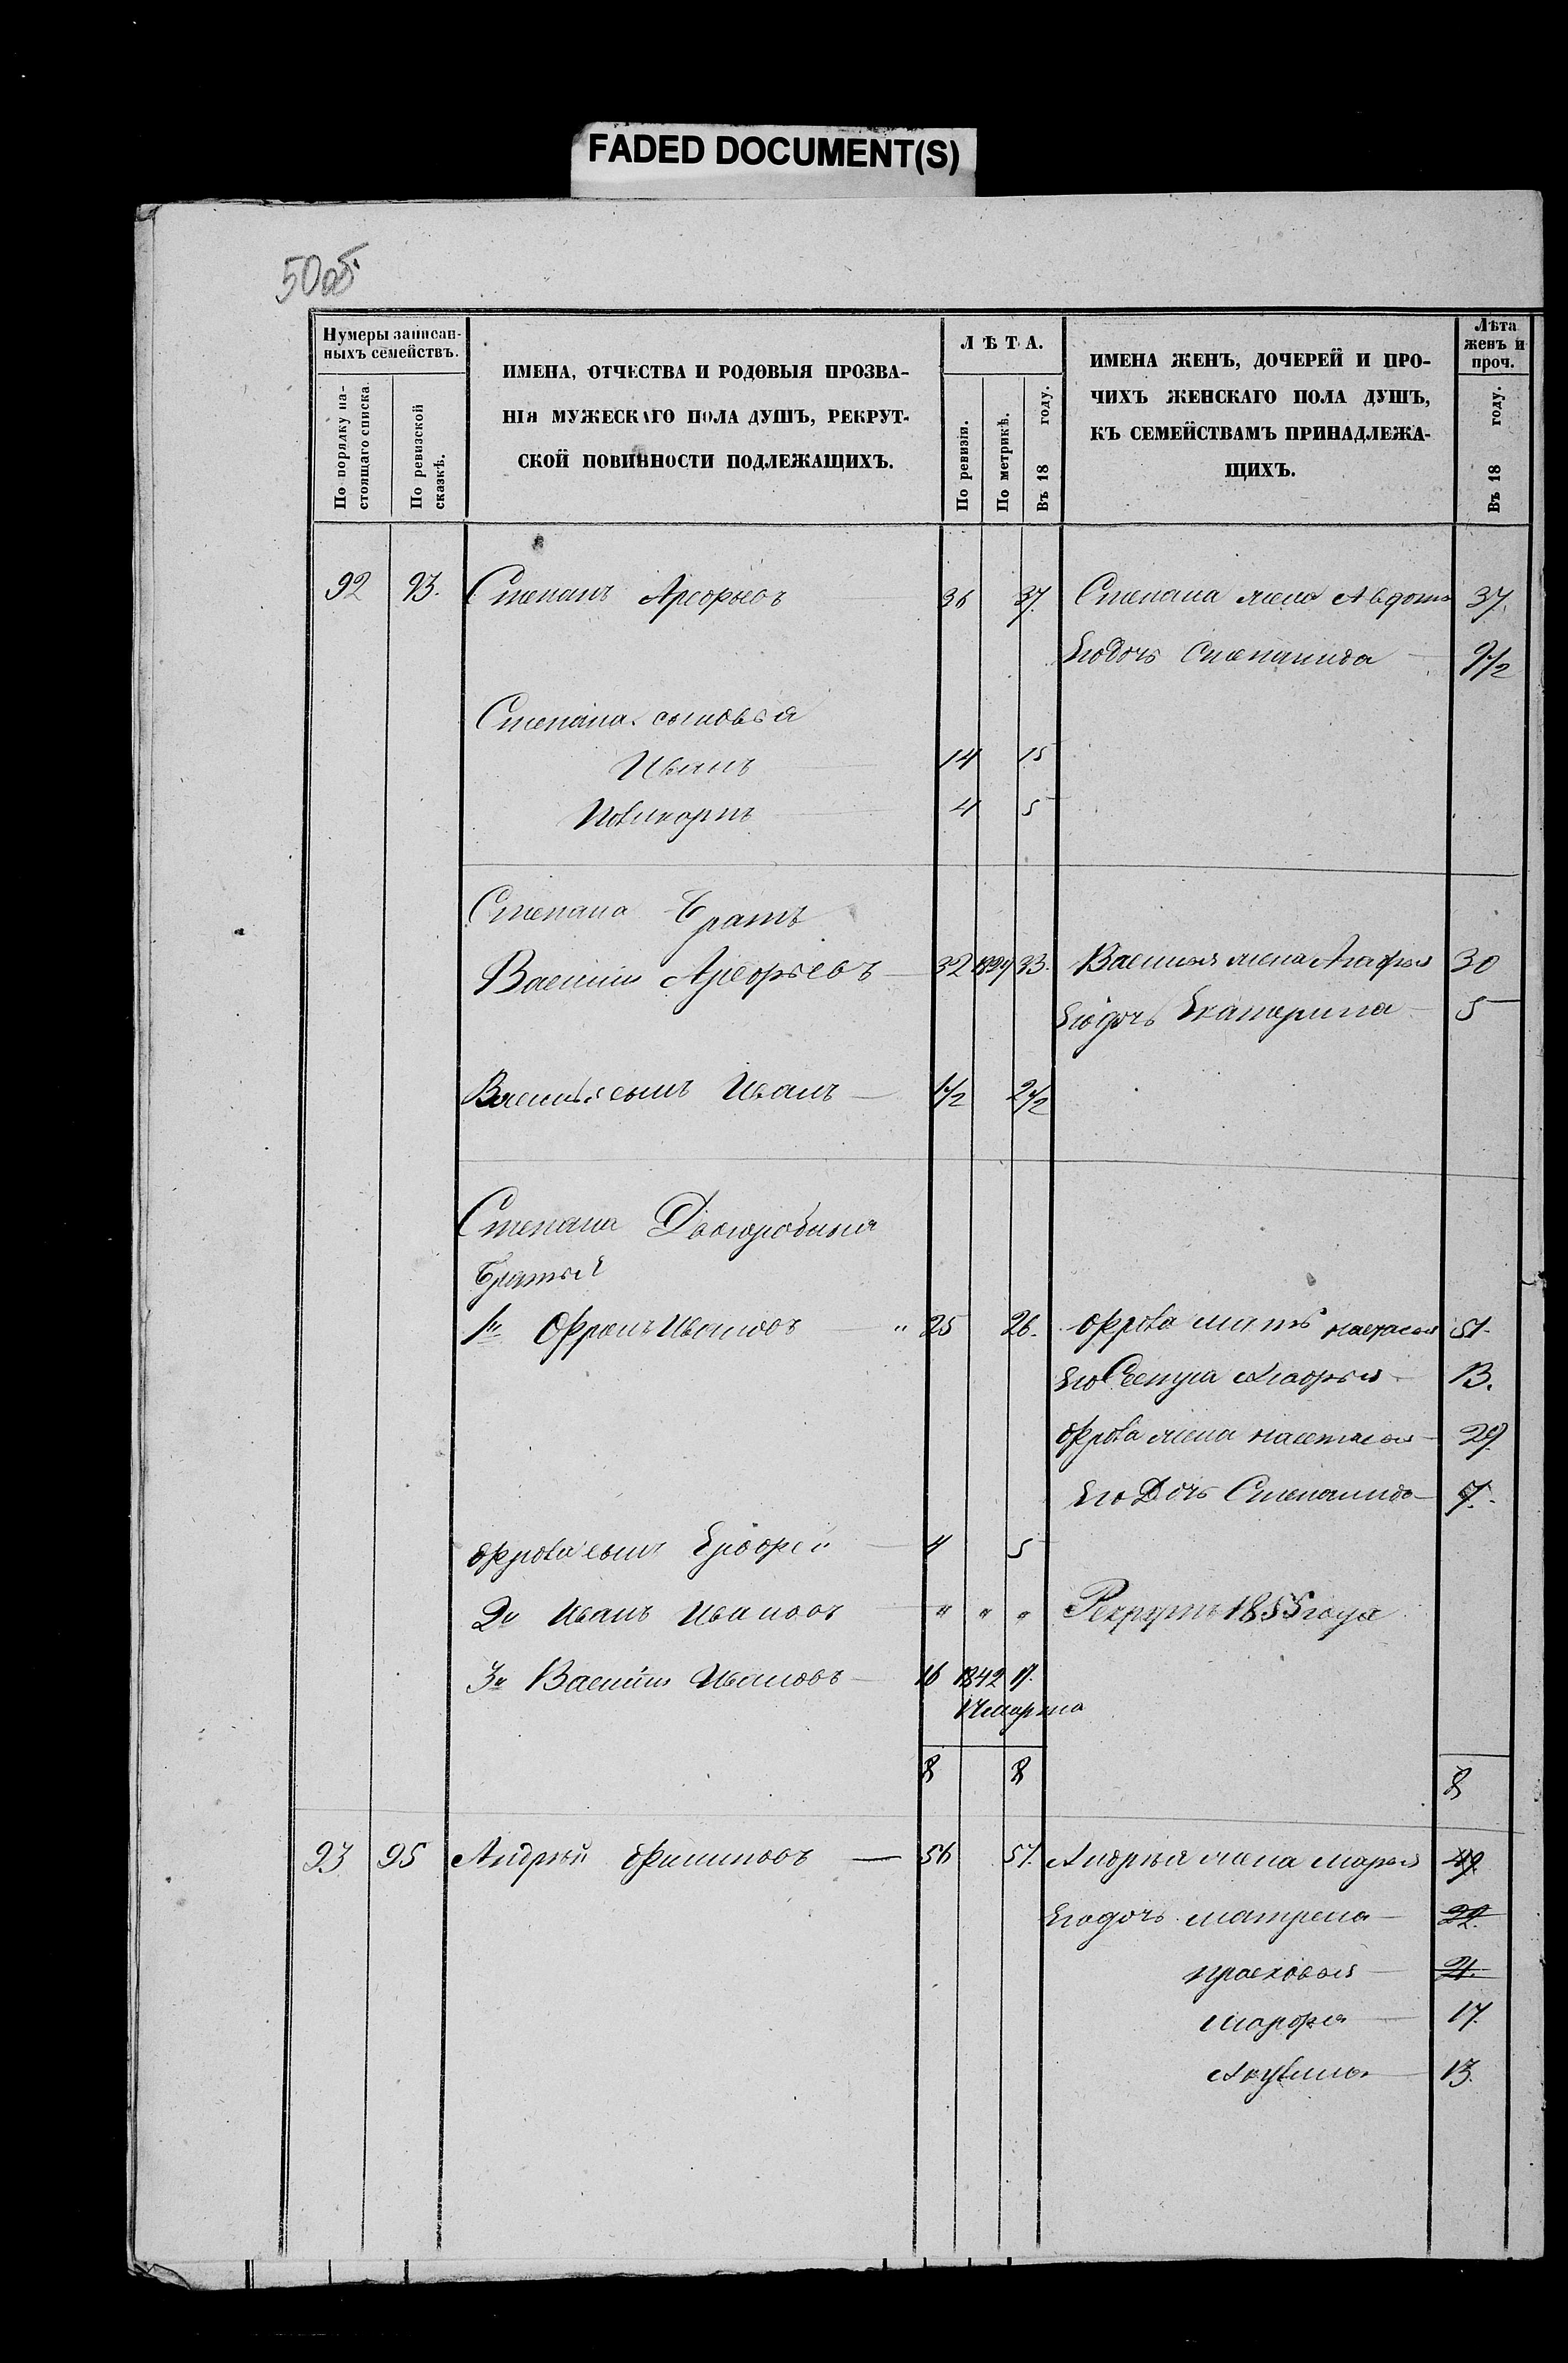 FADED DOCUMENT(S)
50об
Нумеры записан-
ныхъ семействъ.
По порядку на-
стоящаго списка
По ревизской
сказкѣ.
ИМЕНА, ОТЧЕСТВА И РОДОВЫЯ ПРОЗВА-
НІЯ МУЖЕСКАГО ПОЛА ДУШЪ, РЕКРУТ-
СКОЙ ПОВИННОСТИ ПОДЛЕЖАЩИХЪ.
ЛѢТА.
По ревизіи.
По метрикѣ.
Въ 18 году.
ИМЕНА ЖЕНЪ, ДОЧЕРЕЙ И ПРО-
ЧИХЪ ЖЕНСКАГО ПОЛА ДУШЪ,
КЪ СЕМЕЙСТВАМЪ ПРИНАДЛЕЖА-
ЩИХЪ.
Лѣта
женъ и
проч.
Въ 18 году.
92 93. Степанъ Арефьевъ 36 37. Степана жена Авдотья 37.
Его дочь Степанида 9 1/2
Степана сыновья
Иванъ 14 15
Поликарпъ 4 5
Степана братъ
Василий Арефьевъ 32 33. Василья жена Агафья 30
Его дочь Екатерина 5
Василья сынъ Иванъ 1/2 2 1/2
Степана Двоюродныя
братья
1й Фролъ Ивановъ " 25 26. Фрола мать настасья 51.
Его Сестра 13.
Фрола жена настасья 29.
Его Дочь Степанида 7.
Фрола сынъ 4 5
2й Иванъ Ивановъ " " " Рекрутъ 1855 года
3й Василий Ивановъ 16 1842 17.
8 8 8
93 95 Андрей Филиповъ 56 57. Андрея жена марья 49.
Его дочь матрена 22.
прасковья 21.
марфа 17.
Акулина 13.